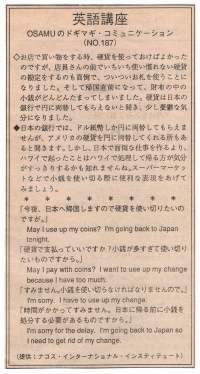 英語講座
OSAMUのドギマギ・コミュニケーション
(NO.187)
◇お店で買い物をする時、硬貨を使っておけばよかった
のですが、店員さんの前でいちいち使い慣れない硬貨
の勘定をするのも面倒で、ついついお札を使うことに
なりました。そして帰国直前になって、財布の中の
小銭がどんどんたまってしまいました。硬貨は日本の
銀行で円に両替してもらえないと聞き、少し憂鬱な気
分になりました。
◆日本の銀行では、ドル紙幣しか円に両替してもらえま
せんが、アメリカの硬貨を円に両替してくれる所もあ
ると聞きます。しかし、日本で面倒な仕事を作るより、
ハワイで起ったことはハワイで処理して帰る方が気分
がすっきりするかも知れませんね。スーパーマーケッ
トなどで小銭を使い切る際に便利な表現をあげてみ
ましょう。
* * * * * * *
「今夜、日本へ帰国しますので硬貨を使い切りたいの
ですが。」
May I use up my coins? I'm going back to Japan
tonight.
「硬貨で支払っていいですか？小銭が多すぎて使い切り
たいものですから。」
May I pay with coins? I want to use up my change
because I have too much.
「すみません。小銭を使い切らなければなりませんので。」
I'm sorry. I have to use up my change.
「時間がかかってすみません。日本に帰る前に小銭を
処分する必要があるものですから。」
I'm sorry for the delay. I'm going back to Japan so
I need to get rid of my change.
(提供：ナコス・インターナショナル・インスティテュート)